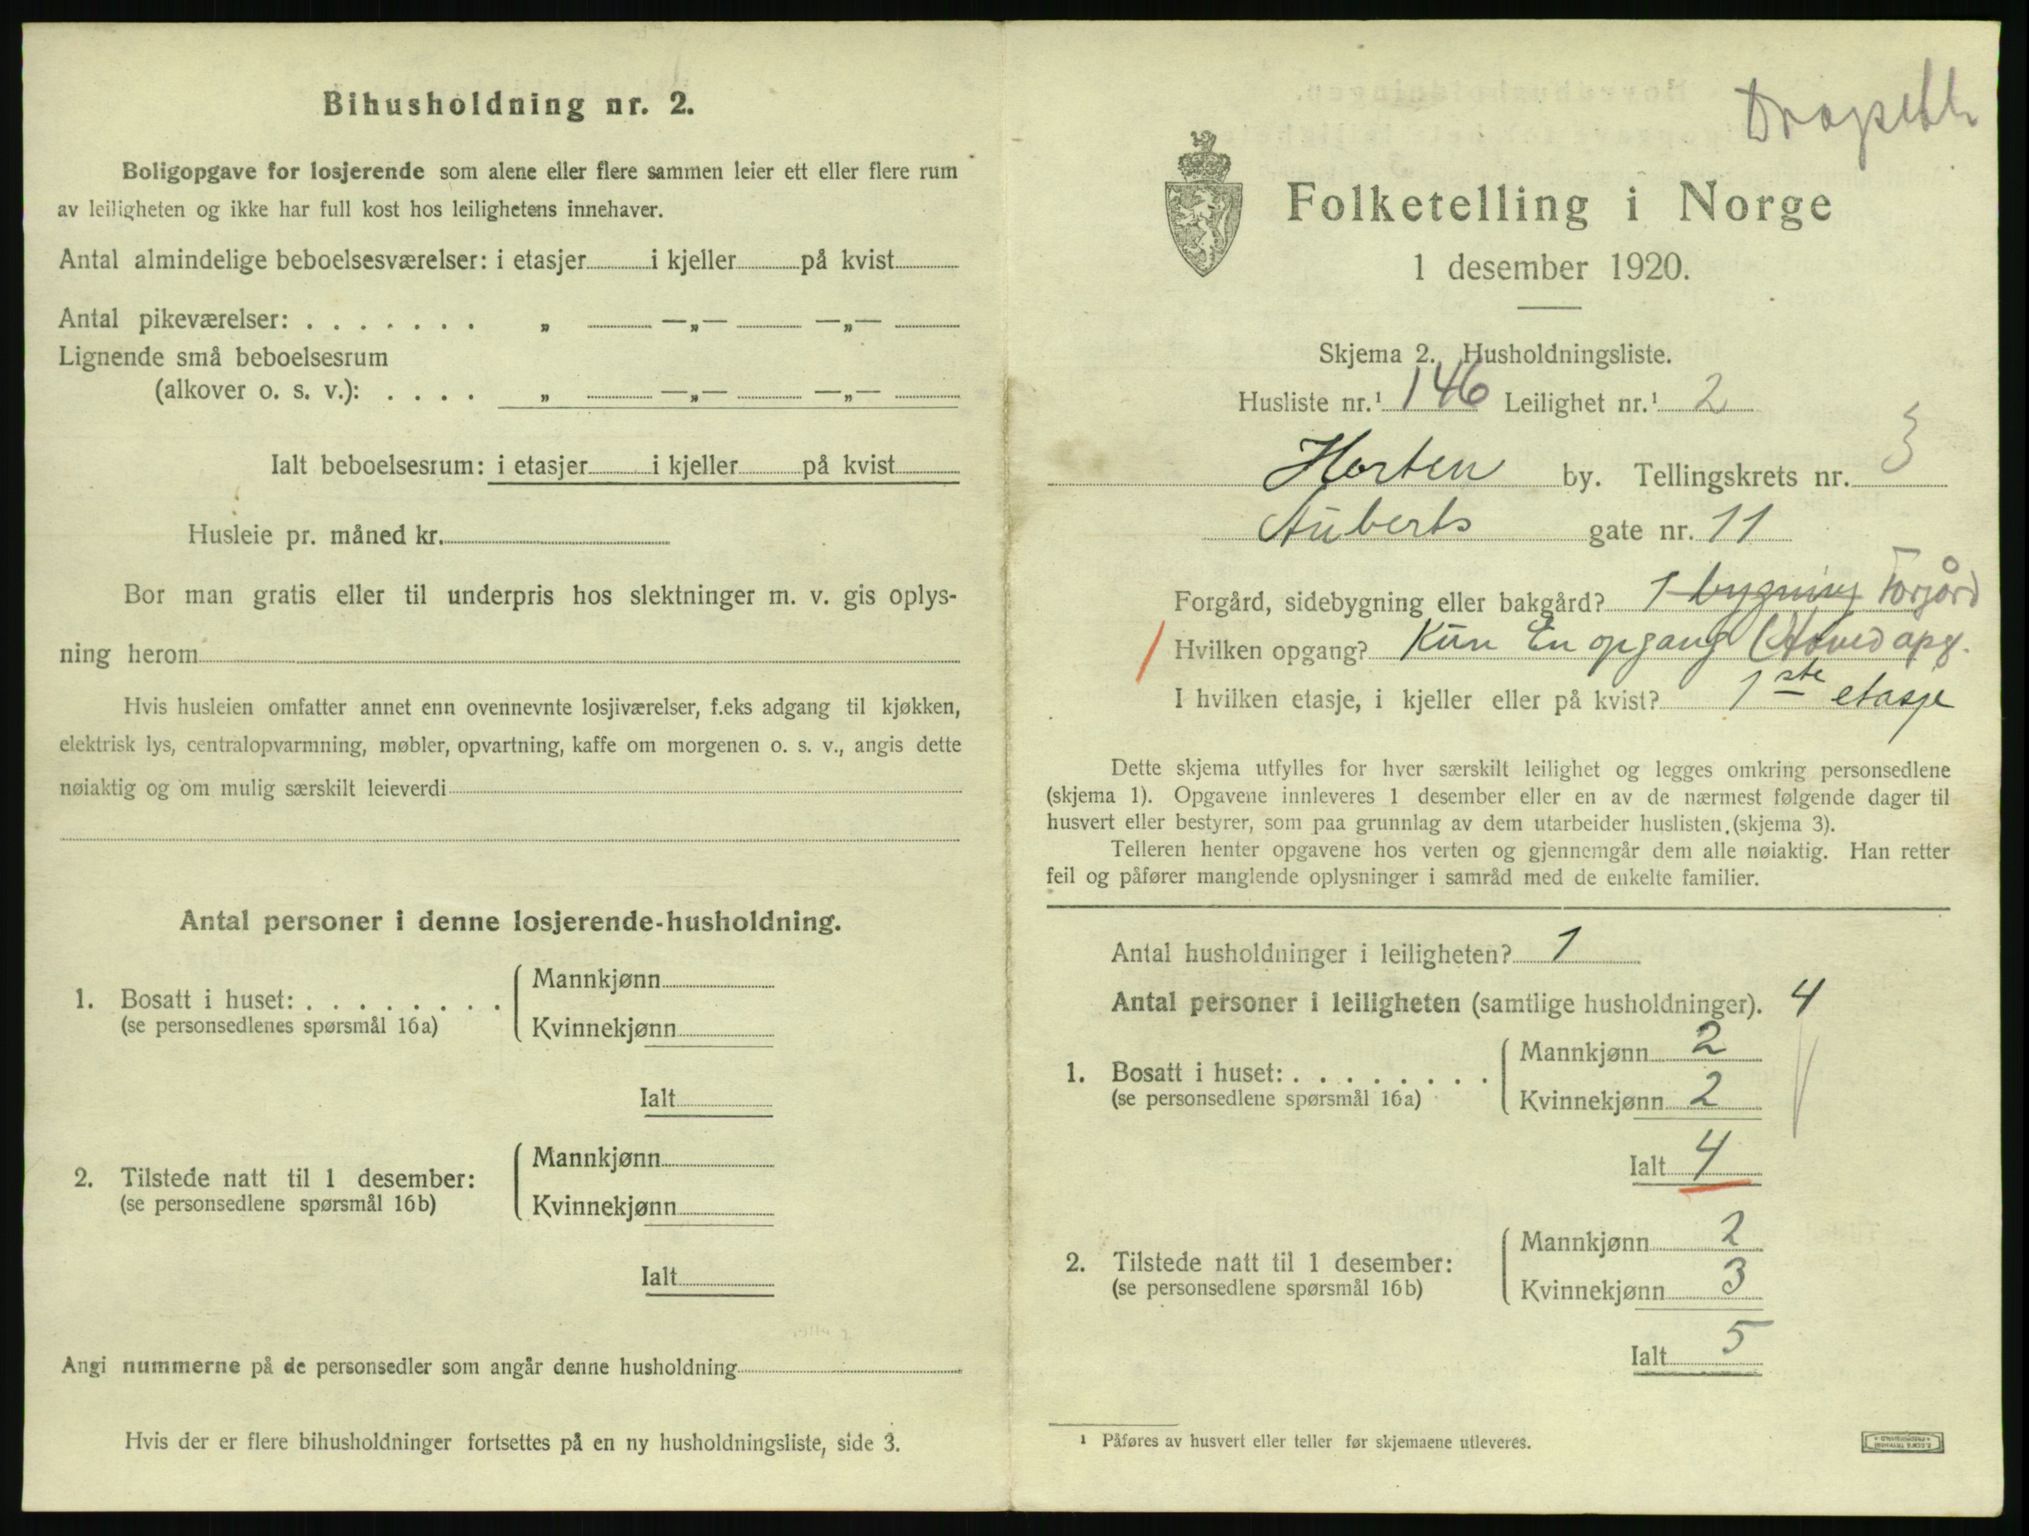 Bihusholdning nr. 2.
Boligopgave for losjerende som alene eller flere sammen leier ett eller flere rum
av leiligheten og ikke har full kost hos leilighetens innehaver.
Antal almindelige beboelsesværelser: i etasjer i kjeller på kvist
Antal pikeværelser: . . . . . . . „ —„— —„—
Lignende små beboelsesrum
(alkover o. s. v.): . . . . „ —„— —„—
Ialt beboelsesrum: i etasjer i kjeller på kvist
Husleie pr. måned kr.
Bor man gratis eller til underpris hos slektninger m. v. gis oplys-
ning herom
Hvis husleien omfatter annet enn ovennevnte losjiværelser, f.eks adgang til kjøkken,
elektrisk lys, centralopvarmning, møbler, opvartning, kaffe om morgenen o. s. v., angis dette
nøiaktig og om mulig særskilt leieverdi
Antal personer i denne losjerende-husholdning.
1. Bosatt i huset: . . . . . . . . Mannkjønn
(se personsedlenes spørsmål 16a) Kvinnekjønn
Ialt
2. Tilstede natt til 1 desember: Mannkjønn
(se personsedlene spørsmål 16b) Kvinnekjønn
Ialt
Angi nummerne på de personsedler som angår denne husholdning
Hvis der er flere bihusholdninger fortsettes på en ny husholdningsliste, side 3.
Folketelling i Norge
1 desember 1920.
Skjema 2. Husholdningsliste.
Husliste nr.¹ 146 Leilighet nr.¹ 2
Horten by. Tellingskrets nr. 3
Auberts gate nr. 11
Forgård, sidebygning eller bakgård? 1 bygning Forgård
Hvilken opgang? Kun En opgang (Hovedopg.
I hvilken etasje, i kjeller eller på kvist? 1ste etasje
Dette skjema utfylles for hver særskilt leilighet og legges omkring personsedlene
(skjema 1). Opgavene innleveres 1 desember eller en av de nærmest følgende dager til
husvert eller bestyrer, som paa grunnlag av dem utarbeider huslisten (skjema 3).
Telleren henter opgavene hos verten og gjennemgår dem alle nøiaktig. Han retter
feil og påfører manglende oplysninger i samråd med de enkelte familier.
Antal husholdninger i leiligheten? 1
Antal personer i leiligheten (samtlige husholdninger). 4
1. Bosatt i huset: . . . . . . . . Mannkjønn 2
(se personsedlene spørsmål 16a) Kvinnekjønn 2
Ialt 4
2. Tilstede natt til 1 desember: Mannkjønn 2
(se personsedlene spørsmål 16b) Kvinnekjønn 3
Ialt 5
¹ Påføres av husvert eller teller før skjemaene utleveres.